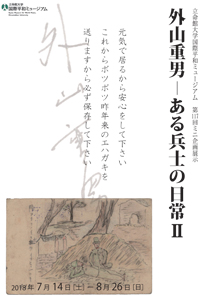 立命館大学
国際平和ミュージアム
立命館大学国際平和ミュージアム 第117回ミニ企画展示
外山重男―ある兵士の日常Ⅱ
元気で居るから安心をして下さい
これからボツボツ昨年来のエハガキを
送りますから必ず保存して下さい
外山重男
2018年7月14日[土]―8月26日[日]